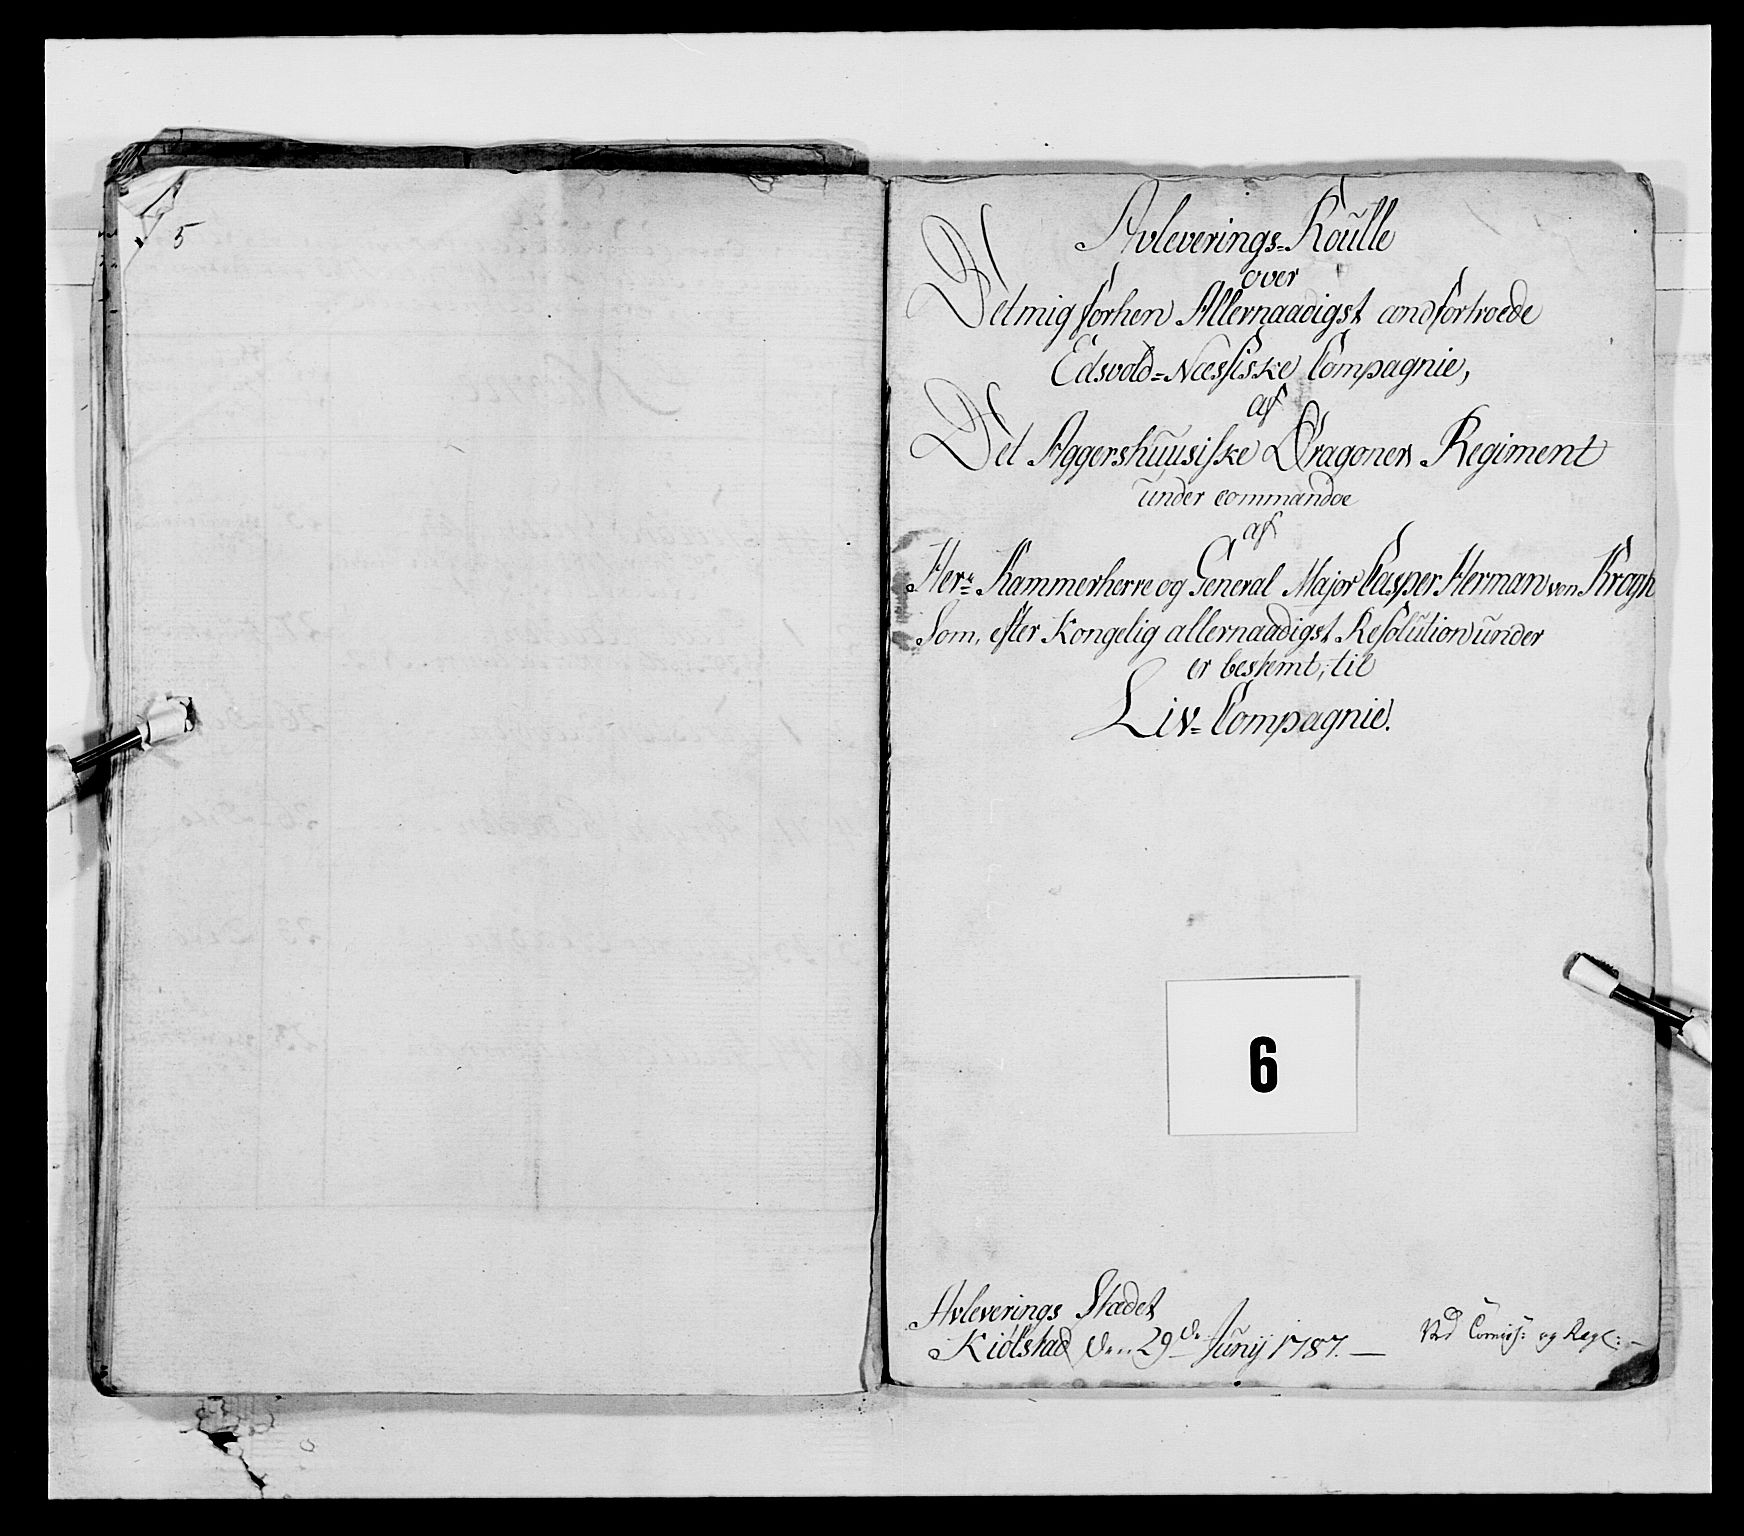 5
Avleverings=Roulle
over
Det mig forhen Allernaadigst andfortroede
Edsvold=Næssiske Compagnie,
af
Det Aggershuusiske Dragoner Regiment
under commandoe
af
Herr Kammerherre og General Major Casper Herman von Krogh
Som, efter Kongelig allernaadigst Resolution under
er bestemt, til
Liv=Compagnie.
6
Avleverings Stædet
Kiølstad den 29de Junij 1787.—
Ved og